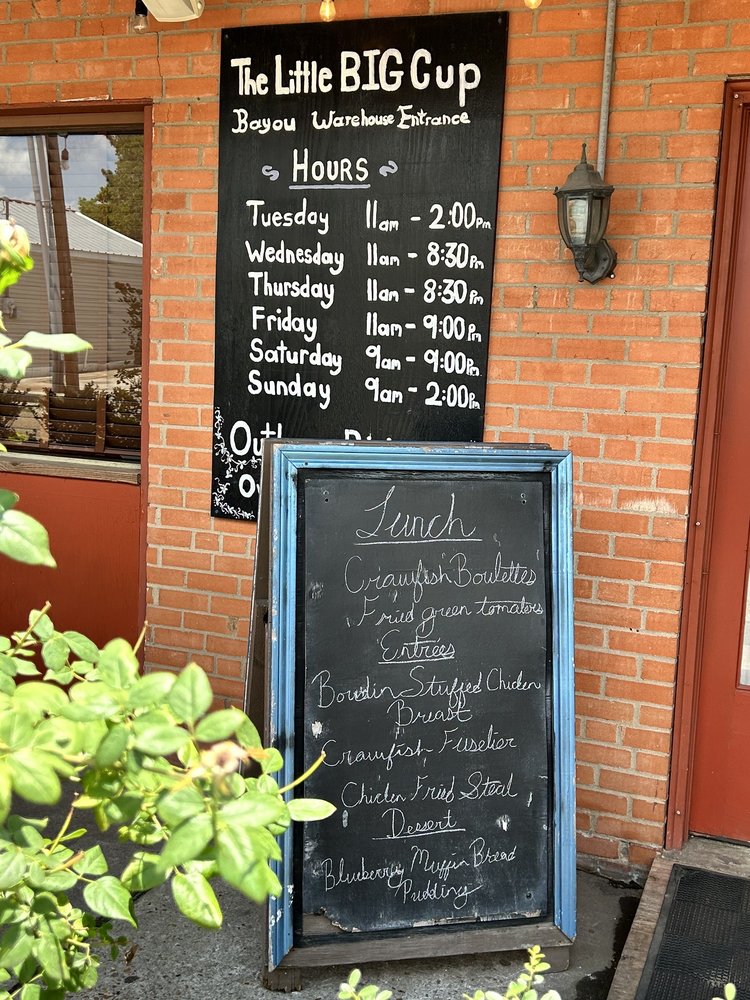 The Little BIG Cup
Bayou Warehouse Entrance
~ HOURS ~
Tuesday 11am - 2:00pm
Wednesday 11am - 8:30pm
Thursday 11am - 8:30pm
Friday 11am - 9:00pm
Saturday 9am - 9:00pm
Sunday 9am - 2:00pm
Lunch
Crawfish Boulettes
Fried green tomatoes
Entrées
Boudin Stuffed Chicken
Breast
Crawfish Fuselier
Chicken Fried Steak
Dessert
Blueberry Muffin Bread
Pudding